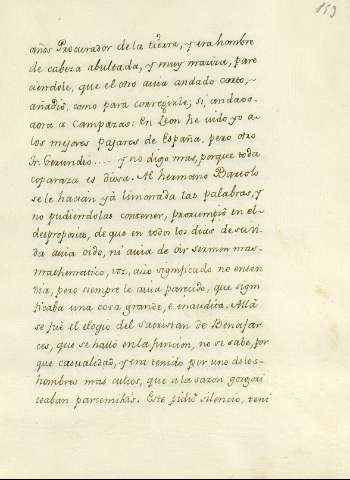 153
años Procurador de la tierra, y era hombre
de cabeza abultada, y muy maziza, pare
ciendole, que el otro avia andado corto,
añadió, como para corregirle; Si, andaos
aora a Campazas: En Leon he oido yo a
los mejores pajaros de España, pero otro
Fr. Gerundio.... y no digo mas, porque toda
coparaza es diosa. Al hermano Bartolo
se le hacian yá limonada las palabras, y
no pudiendolas contener, prorumpió en el
desproposito, de que en todos los dias de su vi
da avia oido, ni avia de oir Sermon mas
mathematico, voz, cuio significado no enten
dia, pero siempre le avia parecido, que sign
ficaba una cosa grande, è inaudita. Allà
se fuè el elogio del Sacristan de Benafar
ces, que se halló en la funcion, no se sabe, por
que casualidad, y era tenido por uno de los
hombres mas cultos, que a la sazon gorgori
teaban parcemikis. Este pidiò silencio, teni